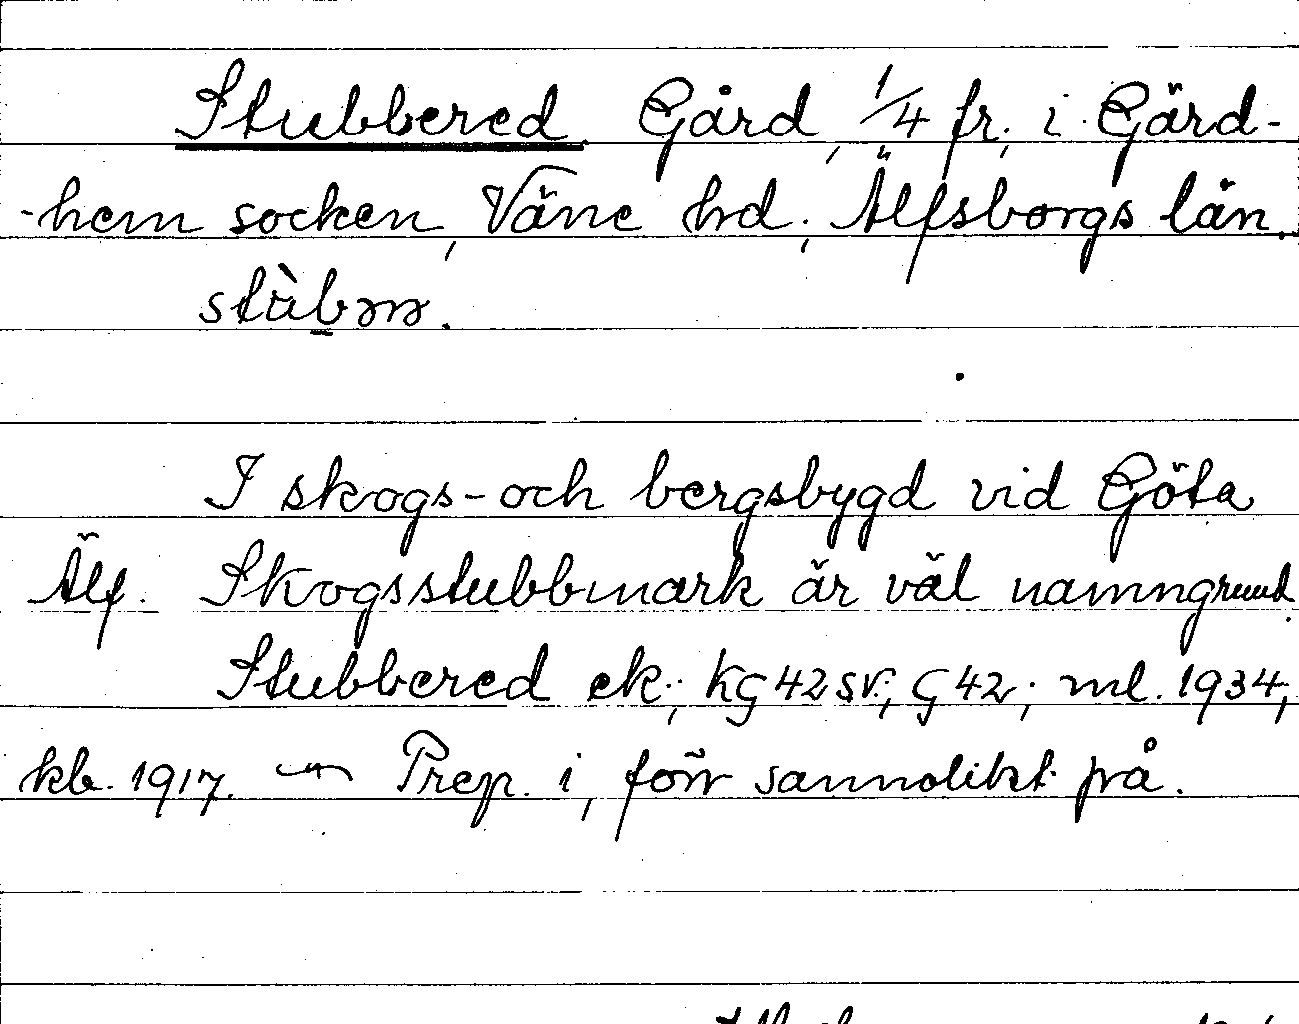 Stubbered Gård, 1/4 fr., i Gärd-
-hem socken, Väne hd., Älfsborgs län.
I skogs- och bergsbygd vid Göta
Älf. Skogsstubbmark är väl namngrund.
Stubbered ek.; KG 42 SV.; G 42; ml. 1934,
kb. 1917. — Prep. i, förr sannolikt på.